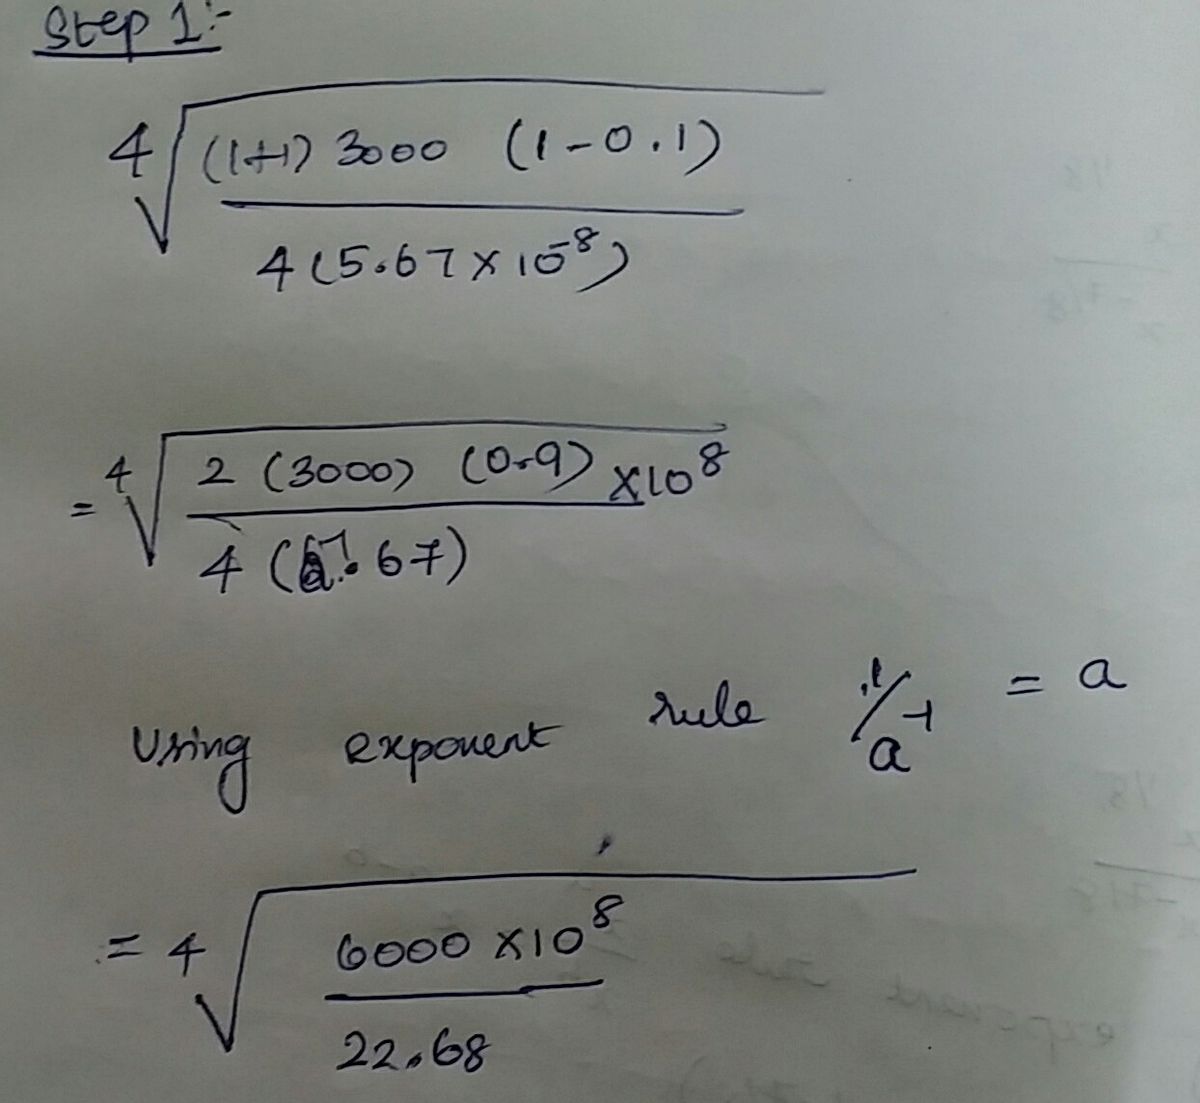 Step 1:-
4√ (1+1) 3000 (1-0.1)
4(5.67×10⁻⁸)
= 4√ 2 (3000) (0.9) ×10⁸
4 (5.67)
Using exponent rule 1/a⁻¹ = a
= 4√ 6000 ×10⁸
22.68